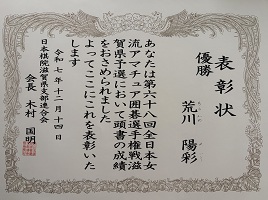 表彰状
優勝
荒川 陽彩
あなたは第六十八回全日本女
流アマチュア囲碁選手権戦滋
賀県予選において頭書の成績
をおさめられました
よってここにこれを表彰いた
します
令和七年十二月十四日
日本棋院滋賀県支部連合会
会長 木村 国明